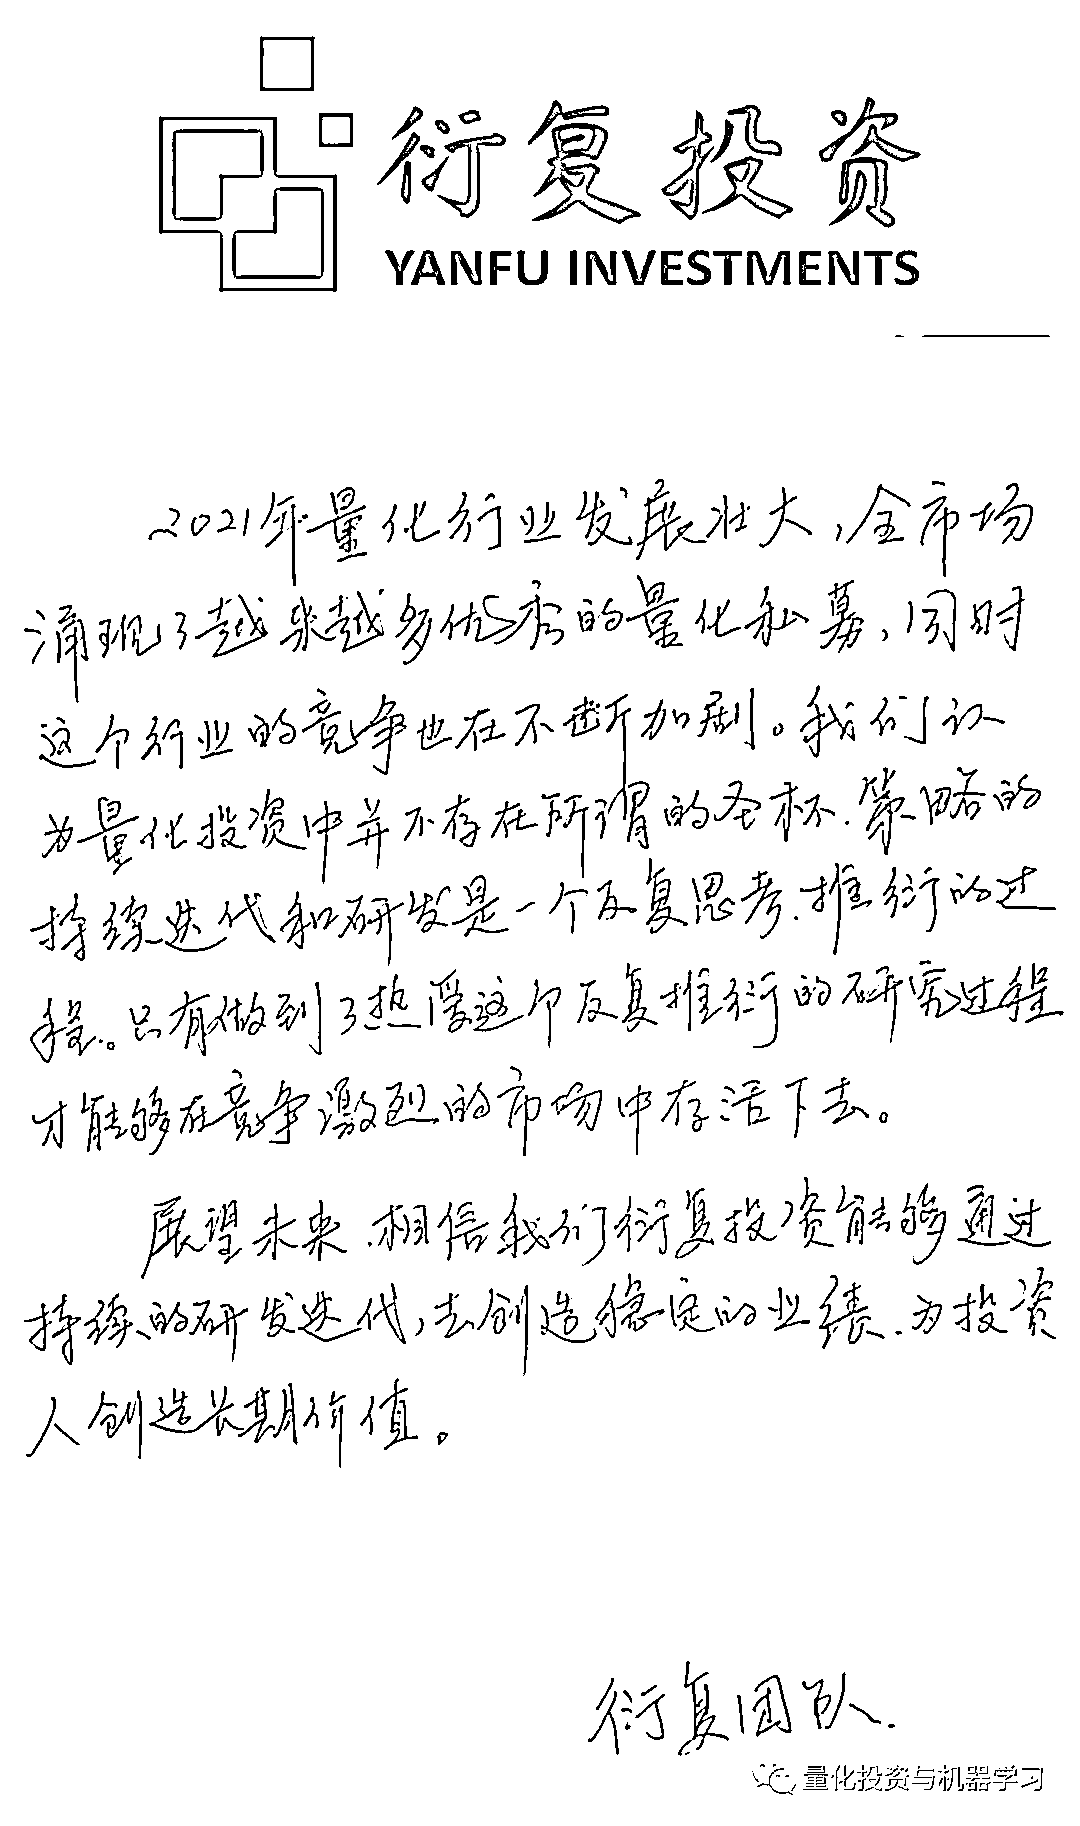 衍复投资
YANFU INVESTMENTS
2021年量化行业发展壮大,全市场
涌现了越来越多优秀的量化私募,同时
这个行业的竞争也在不断加剧。我们认
为量化投资中并不存在所谓的圣杯.策略的
持续迭代和研发是一个反复思考.推衍的过
程。只有做到了热爱这个反复推衍的研究过程
才能够在竞争激烈的市场中存活下去。
展望未来.相信我们衍复投资能够通过
持续的研发迭代,去创造稳定的业绩.为投资
人创造长期价值。
衍复团队.
量化投资与机器学习